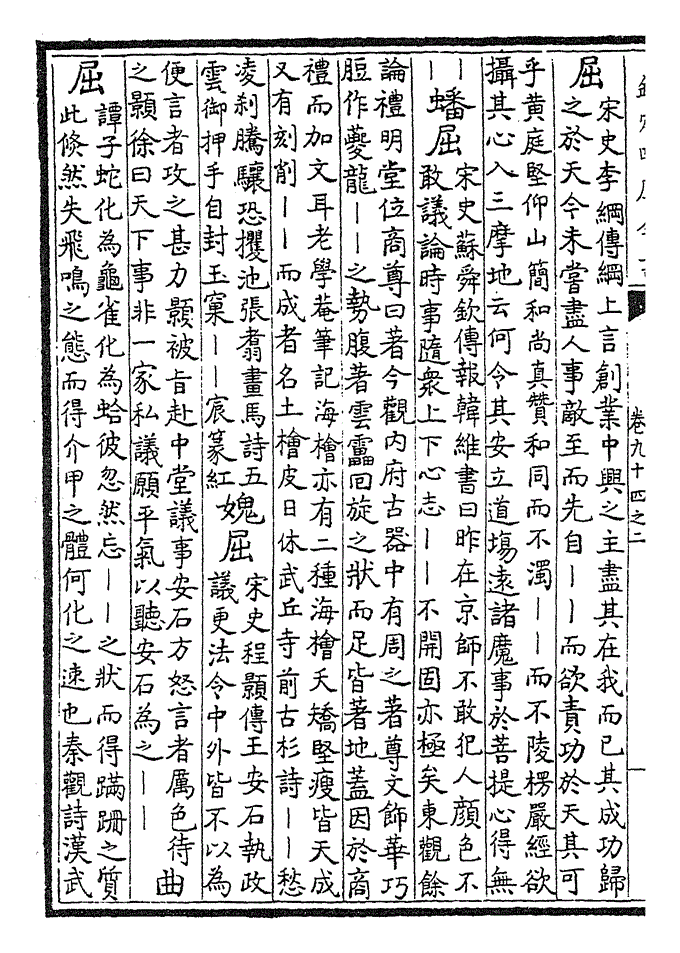 欽定四庫全書
卷九十四之二
一
屈
宋史李綱傳綱上言創業中興之主盡其在我而已其成功歸
之於天今未嘗盡人事敵至而先自——而欲責功於天其可
乎黃庭堅仰山簡和尚真贊和同而不濁——而不陵楞嚴經欲
攝其心入三摩地云何令其安立道塲遠諸魔事於菩提心得無
——
蟠屈
宋史蘇舜欽傳報韓維書曰昨在京師不敢犯人顔色不
敢議論時事隨衆上下心志——不開固亦極矣東觀餘
論禮明堂位商尊曰著今觀内府古器中有周之著尊文飾華巧
脰作夔龍——之勢腹著雲靁回旋之狀而足皆著地蓋因於商
禮而加文耳老學菴筆記海檜亦有二種海檜夭矯堅瘦皆天成
又有刻削——而成者名土檜皮日休武丘寺前古杉詩——愁
凌刹騰驤恐攫池張翥畫馬詩五
雲御押手自封玉窠——宸篆紅
媿屈
宋史程顥傳王安石執政
議更法令中外皆不以為
便言者攻之甚力顥被旨赴中堂議事安石方怒言者厲色待
之顥徐曰天下事非一家私議願平氣以聽安石為之——
曲
屈
譚子蛇化為龜雀化為蛤彼忽然忘——之狀而得蹣跚之質
此倏然失飛鳴之態而得介甲之體何化之速也秦觀詩漢武